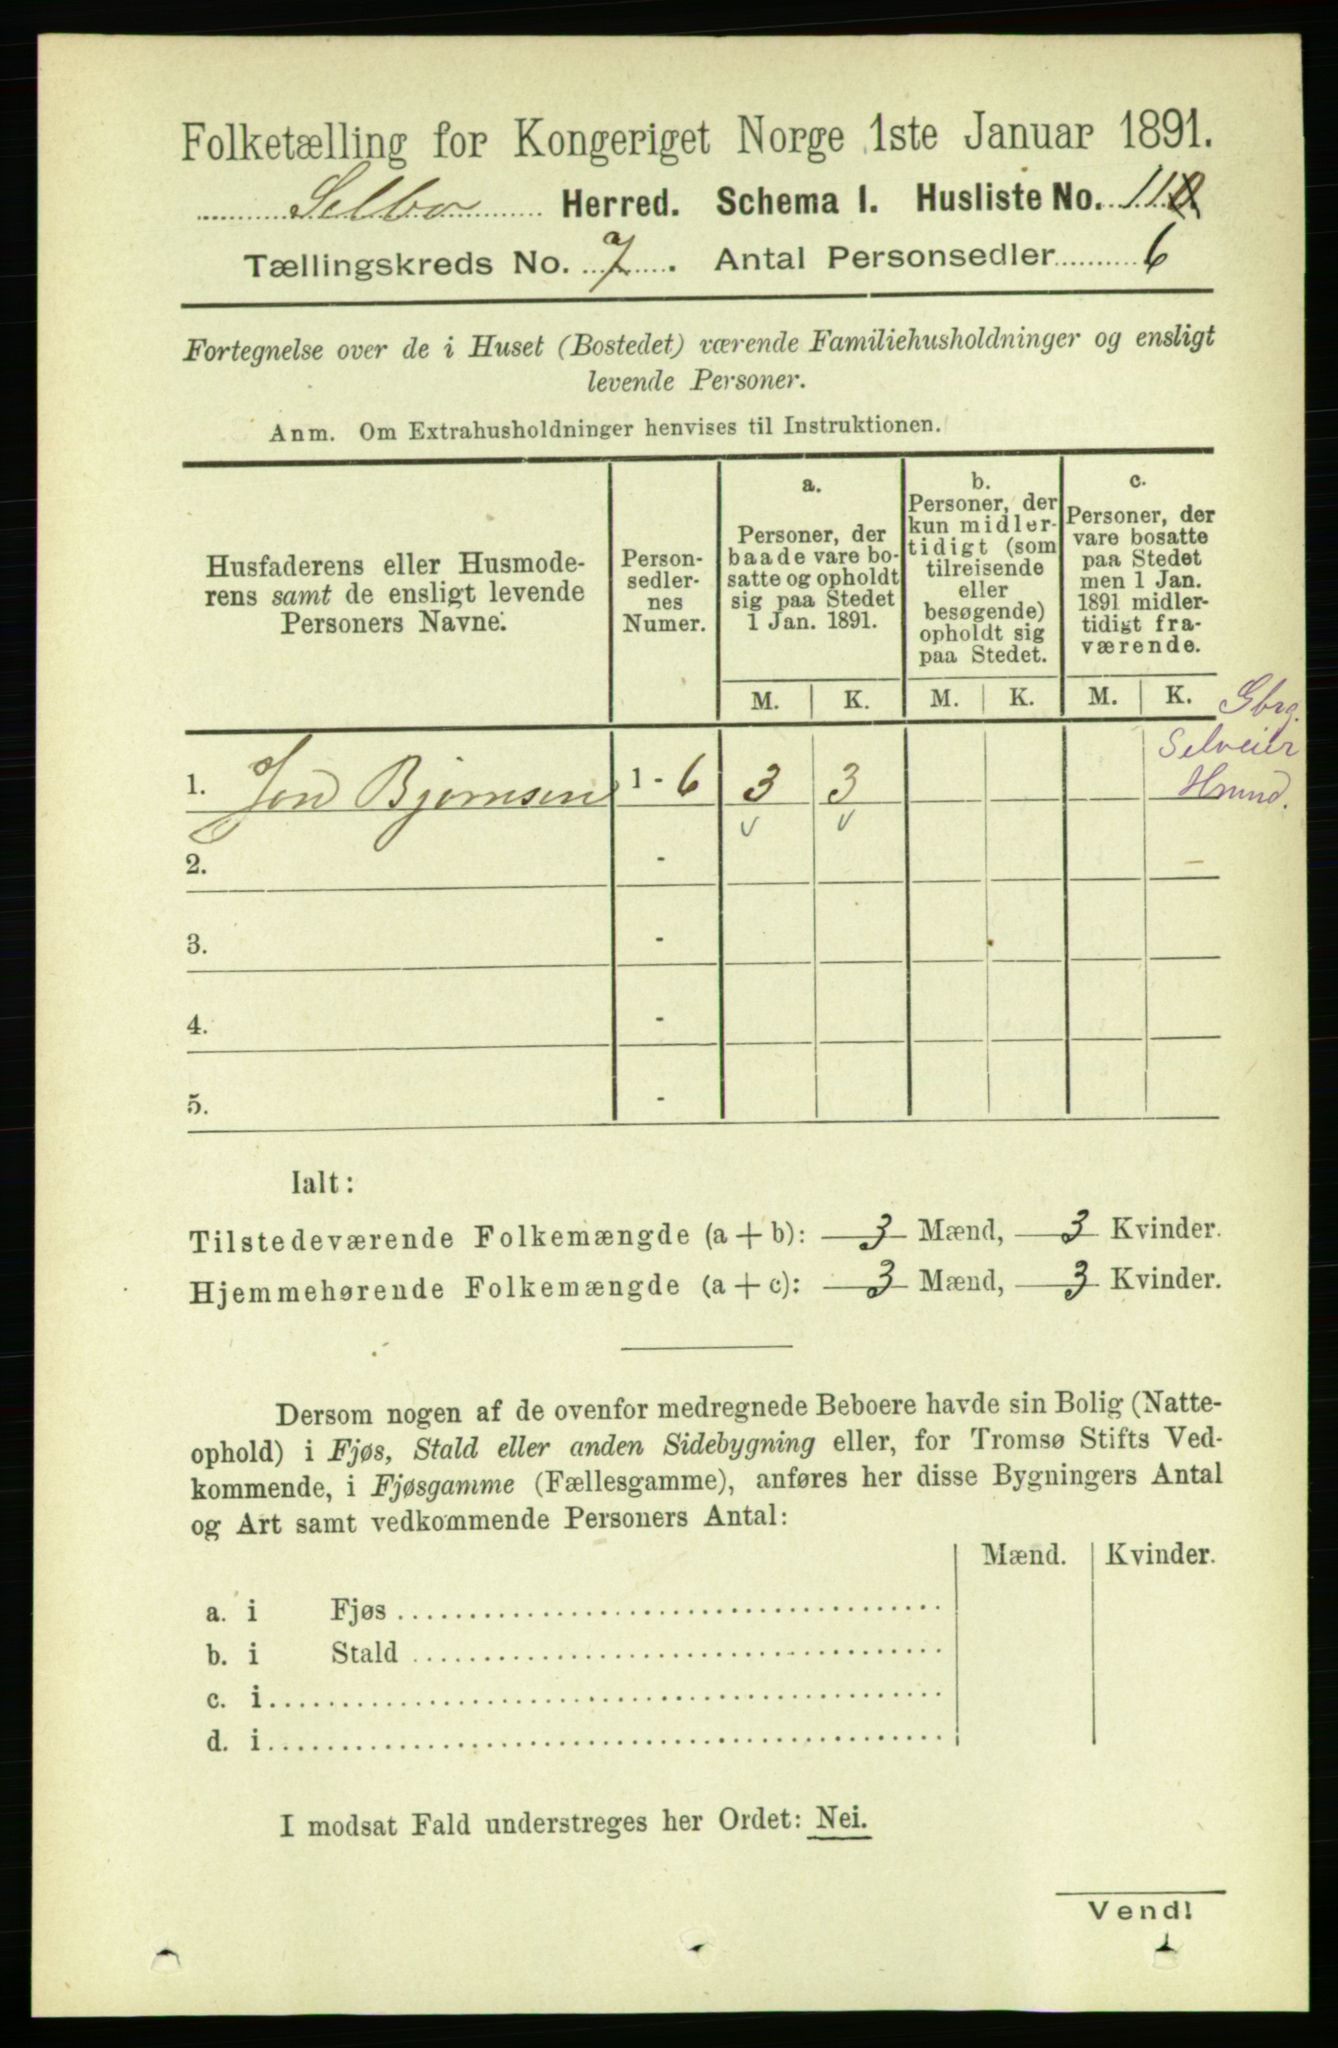 Folketælling for Kongeriget Norge 1ste Januar 1891.
Selbo Herred. Schema I. Husliste No. 11
Tællingskreds No. 7. Antal Personsedler 6
Fortegnelse over de i Huset (Bostedet) værende Familiehusholdninger og ensligt
levende Personer.
Anm. Om Extrahusholdninger henvises til Instruktionen.
Husfaderens eller Husmode-
rens samt de ensligt levende
Personers Navne.
Person-
sedler-
nes
Numer.
a.
Personer, der
baade vare bo-
satte og opholdt
sig paa Stedet
1 Jan. 1891.
b.
Personer, der
kun midler-
tidigt (som
tilreisende
eller
besøgende)
opholdt sig
paa Stedet.
c.
Personer, der
vare bosatte
paa Stedet
men 1 Jan.
1891 midler-
tidigt fra-
værende.
M. K. M. K. M. K.
Gbrg.
Selveier
1. Jon Bjørnsen 1 - 6 3 3
2. -
3. -
4. -
5. -
Ialt:
Tilstedeværende Folkemængde (a + b): 3 Mænd, 3 Kvinder.
Hjemmehørende Folkemængde (a + c): 3 Mænd, 3 Kvinder.
Dersom nogen af de ovenfor medregnede Beboere havde sin Bolig (Natte-
ophold) i Fjøs, Stald eller anden Sidebygning eller, for Tromsø Stifts Ved-
kommende, i Fjøsgamme (Fællesgamme), anføres her disse Bygningers Antal
og Art samt vedkommende Personers Antal:
Mænd. Kvinder.
a. i Fjøs
b. i Stald
c. i
d. i
I modsat Fald understreges her Ordet: Nei.
Vend!